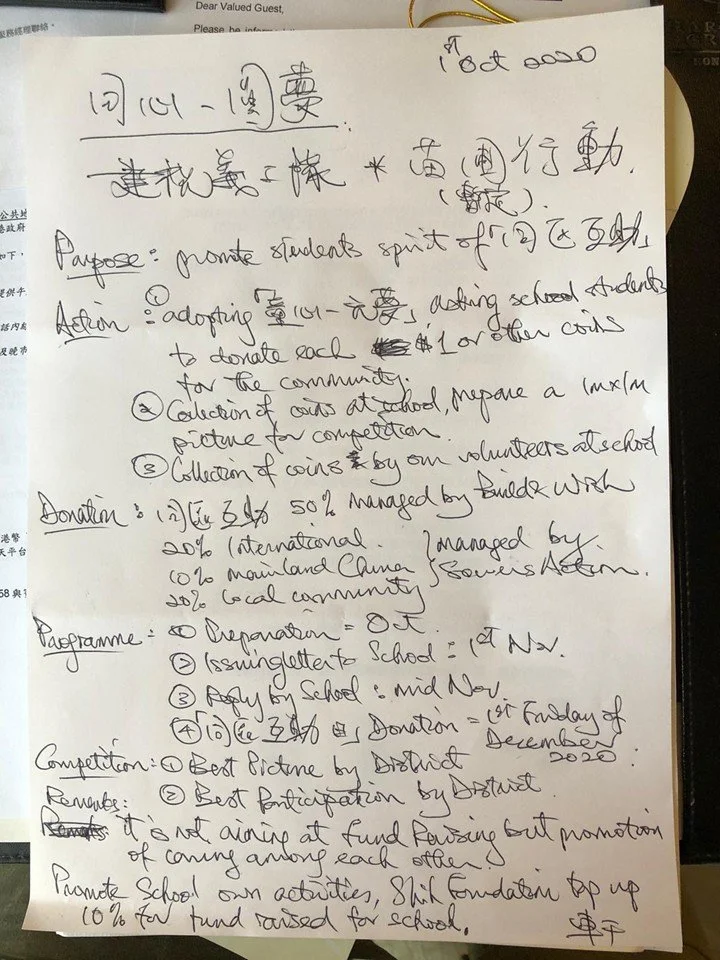 Dear Valued Guest,
Please be
1st Oct 2020
同心一圓夢
建校義工隊 * 苗圃行動
(暫定).
Purpose: promote students spirit of「同區互動」
Action: ① adopting「童心一元夢」asking school students
to donate each $1 or other coins
for the community.
② Collection of coins at school, prepare a 1m x 1m
picture for competition.
③ Collection of coins by our volunteers at school
Donation: 同區互動 50% managed by Build & Wish
20% International. } managed by
10% Mainland China } Sowers Action.
20% Local community
Programme: ① Preparation = Oct.
② Issuing letter to School: 1st Nov.
③ Reply by School: mid Nov.
④「同區互動日」Donation = 1st Friday of
December
2020
Competition: ① Best Picture by District
② Best Participation by District.
Remarks:
it is not aiming at fund Raising but promotion
of caring among each other.
Promote School own activities, Foundation top up
10% for fund raised for school.